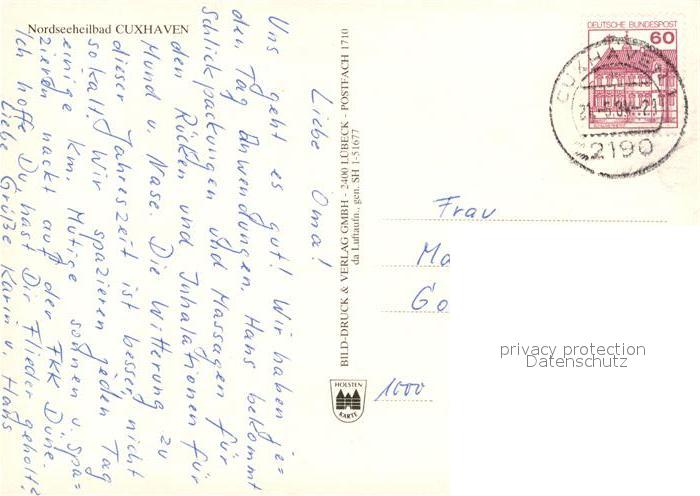 Nordseeheilbad CUXHAVEN
Liebe Oma!
Uns geht es gut! Wir haben je=
den Tag Anwendungen. Hans bekommt
Schlickpackungen und Massagen für
den Rücken und Inhalationen für
Mund u. Nase. Die Witterung zu
dieser Jahreszeit ist besser, nicht
so kalt. Wir spazieren jeden Tag
einige km. Mutige sonnen u. spa=
zieren nackt auf der FKK Düne.
Ich hoffe Du hast Dir Flieder geholt?
Liebe Grüße Karin u. Hans
BILD-DRUCK & VERLAG GMBH - 2400 LÜBECK - POSTFACH 1710
da Luftaufn., gen. SH 1-51677
HOLSTEN
KARTE
DEUTSCHE BUNDESPOST
60
CUXHAVEN 1
2190
Frau
Ma
Go
1000
privacy protection
Datenschutz